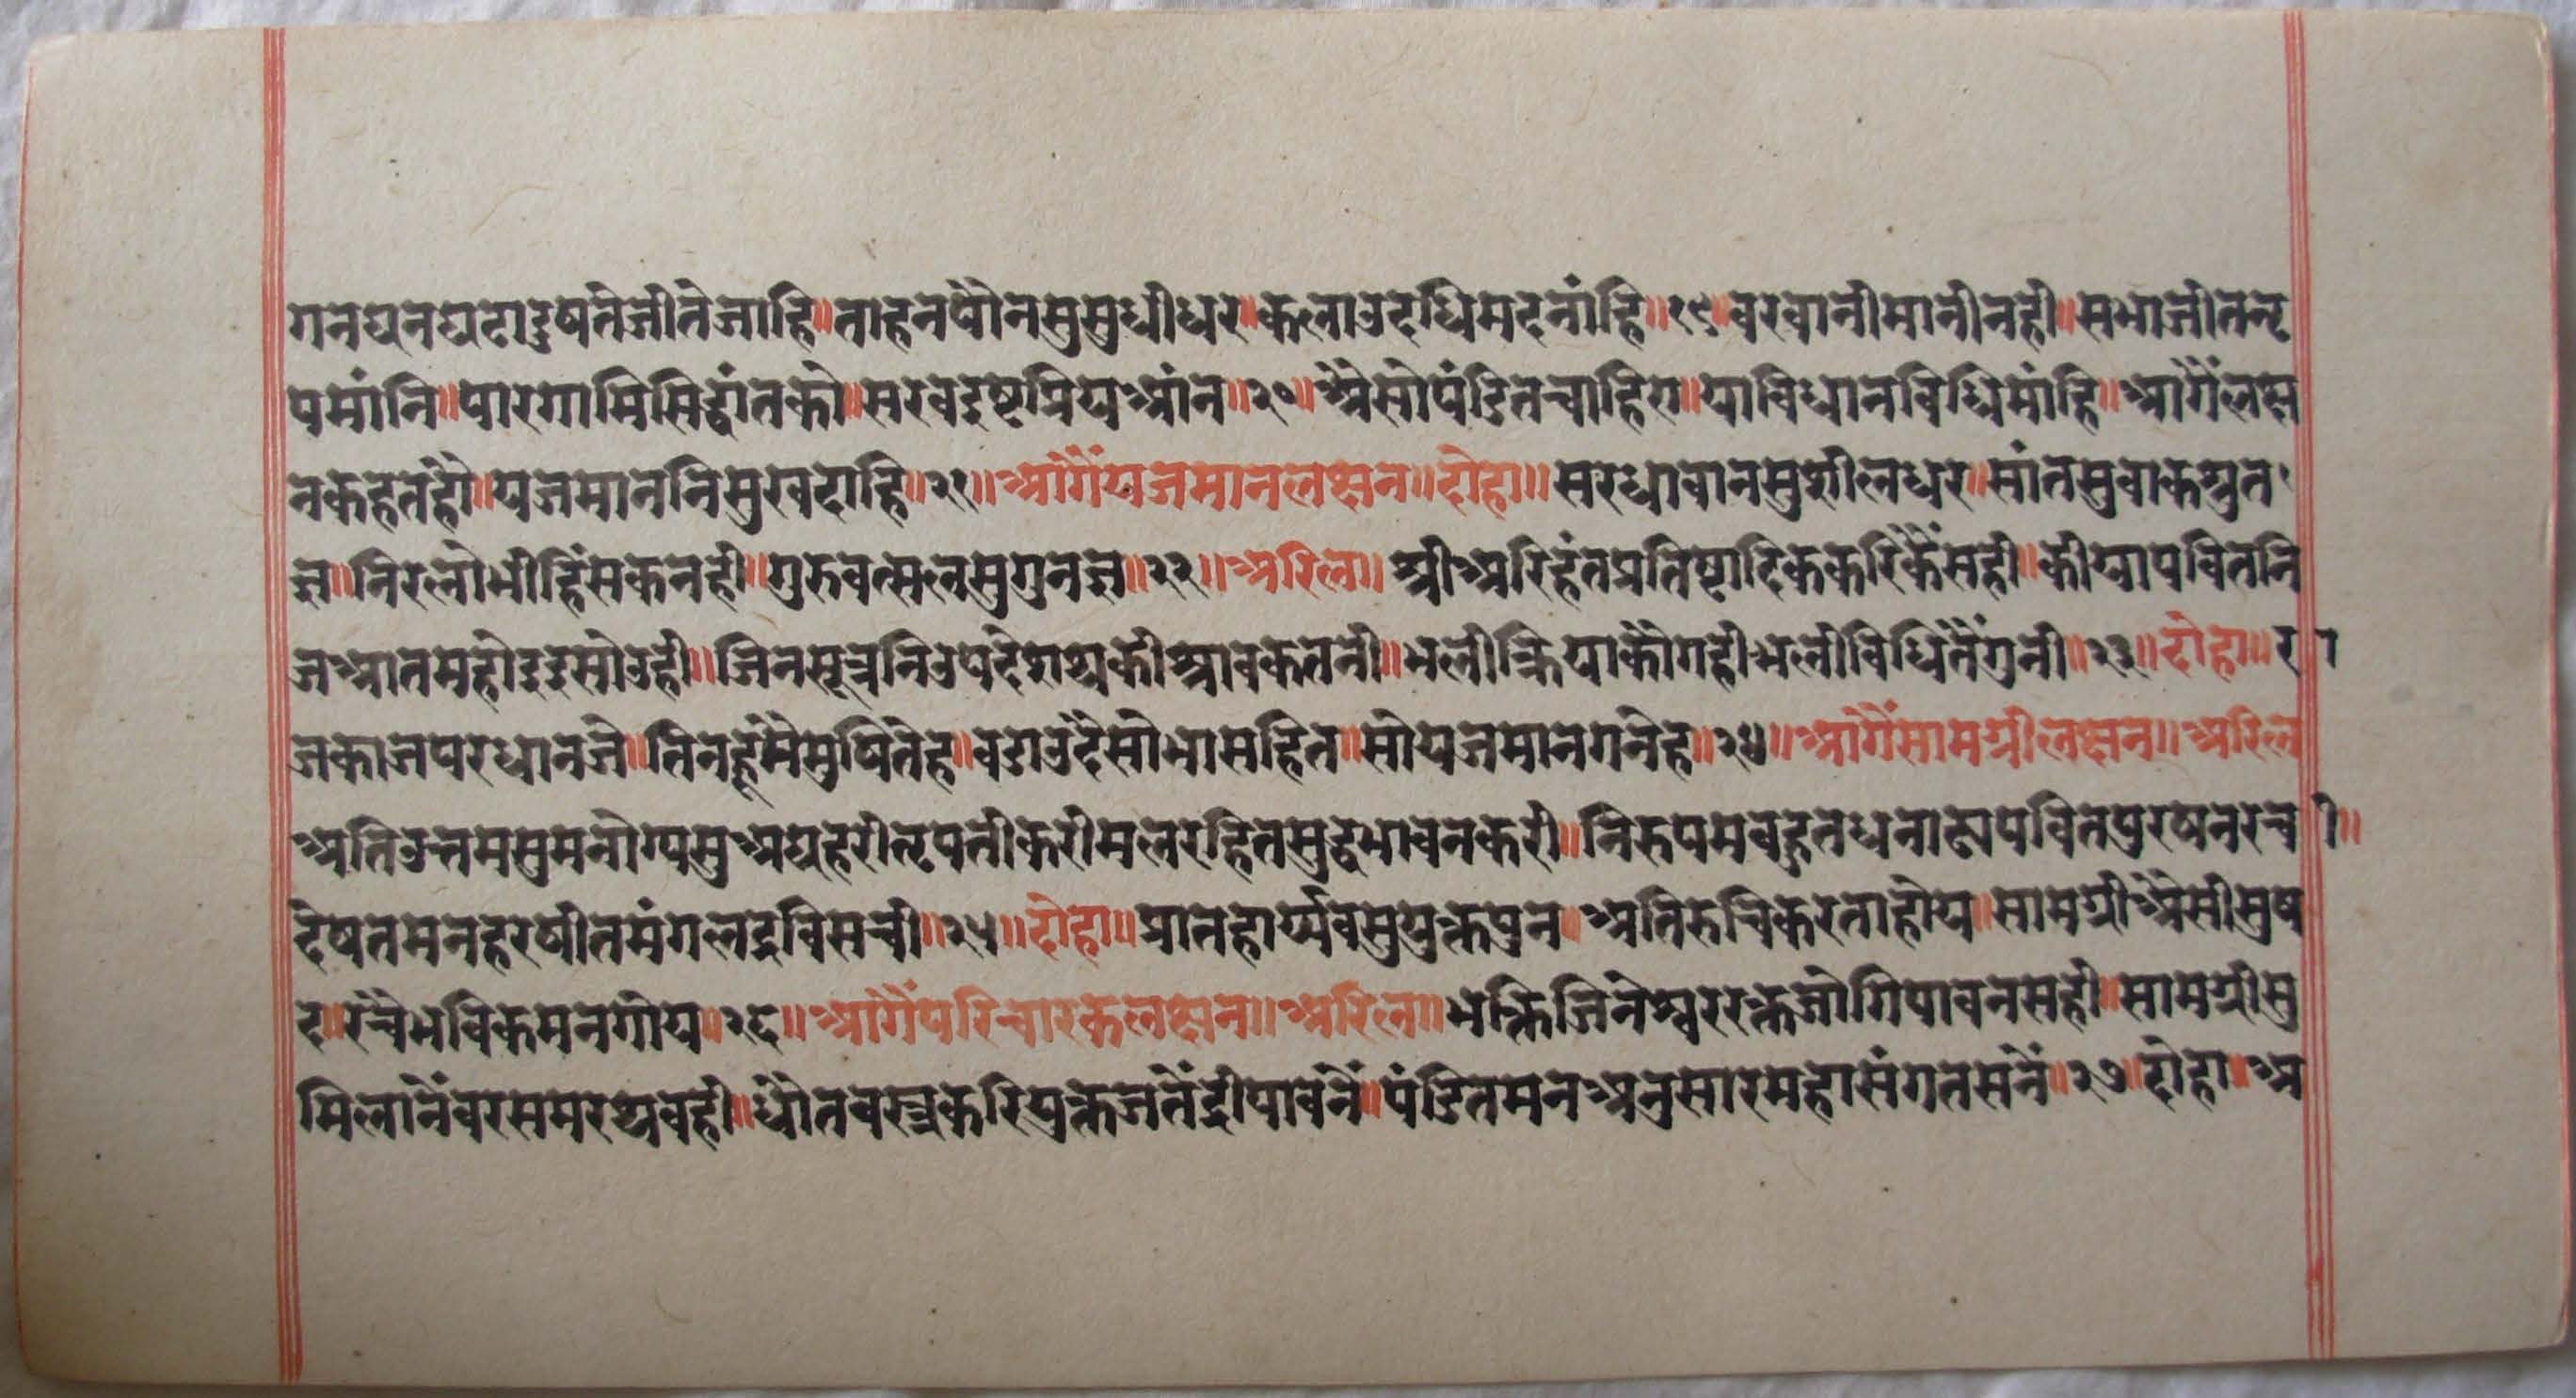 गनघनघटादुषतेजीतेजाहि॥ताहनपौनसुसुधीधर॥कलाउदधिमदनांहि॥१९॥बरवानीमानीनही॥सभाजीतनृ
पमांनि॥पारगामिसिद्धांतको॥सरवदृष्टप्रियआंन॥२०॥अैसोपंडितचाहिए॥याविधानविधिमांहि॥आगैंलक्ष
नकहतहौं॥यजमाननिसुखदाहि॥२१॥आगैंयजमानलक्षन॥दोहा॥सरधावानसुशीलधर॥सांतसुवाकश्रुत
ज्ञ॥निरलोभीहिंसकनही॥गुरुवत्सलसुगुनज्ञ॥२२॥अरिल॥श्रीअरिहंतप्रतिष्टादिककरिकैंसही॥कीयापवितनि
जआतमहोइइसोउही॥जिनसूत्रनिउपदेशथकीश्रावकतनी॥भलीक्रियाकौंगहीभलीविधितैंगुनी॥२३॥दोहा॥रा
जकाजपरधानजे॥तिनहूंमैमुषितेह॥वडाउदैसोभासहित॥सोयजमानगनेह॥२४॥आगैंसामग्रीलक्षन॥अरिल
अतिउत्तमसुमनोग्यसुअघहरीतृपतीकरीमलरहितसुद्धभावनकरी॥निरुपमबहुतधनाढ्यपवितपुरषनरची॥
देषतमनहरषीतमंगलद्रविसची॥२५॥दोहा॥प्रातहार्य्यवसुयुक्तपुन॥अतिरुचिकरताहोय॥सामग्रीअैसीसुष
द॥रचैभविकमनगोय॥२६॥आगैंपरिचारकलक्षन॥अरिल॥भक्तिजिनेश्वररक्तजोगिपावनसही॥सामग्रीसु
मिलानैंवरसमरथवही॥धौतवस्त्रकरियुक्तजतैंद्रीपावनैं॥पंडितमनअनुसारमहासंगतसनैं॥२७॥दोहा॥अ